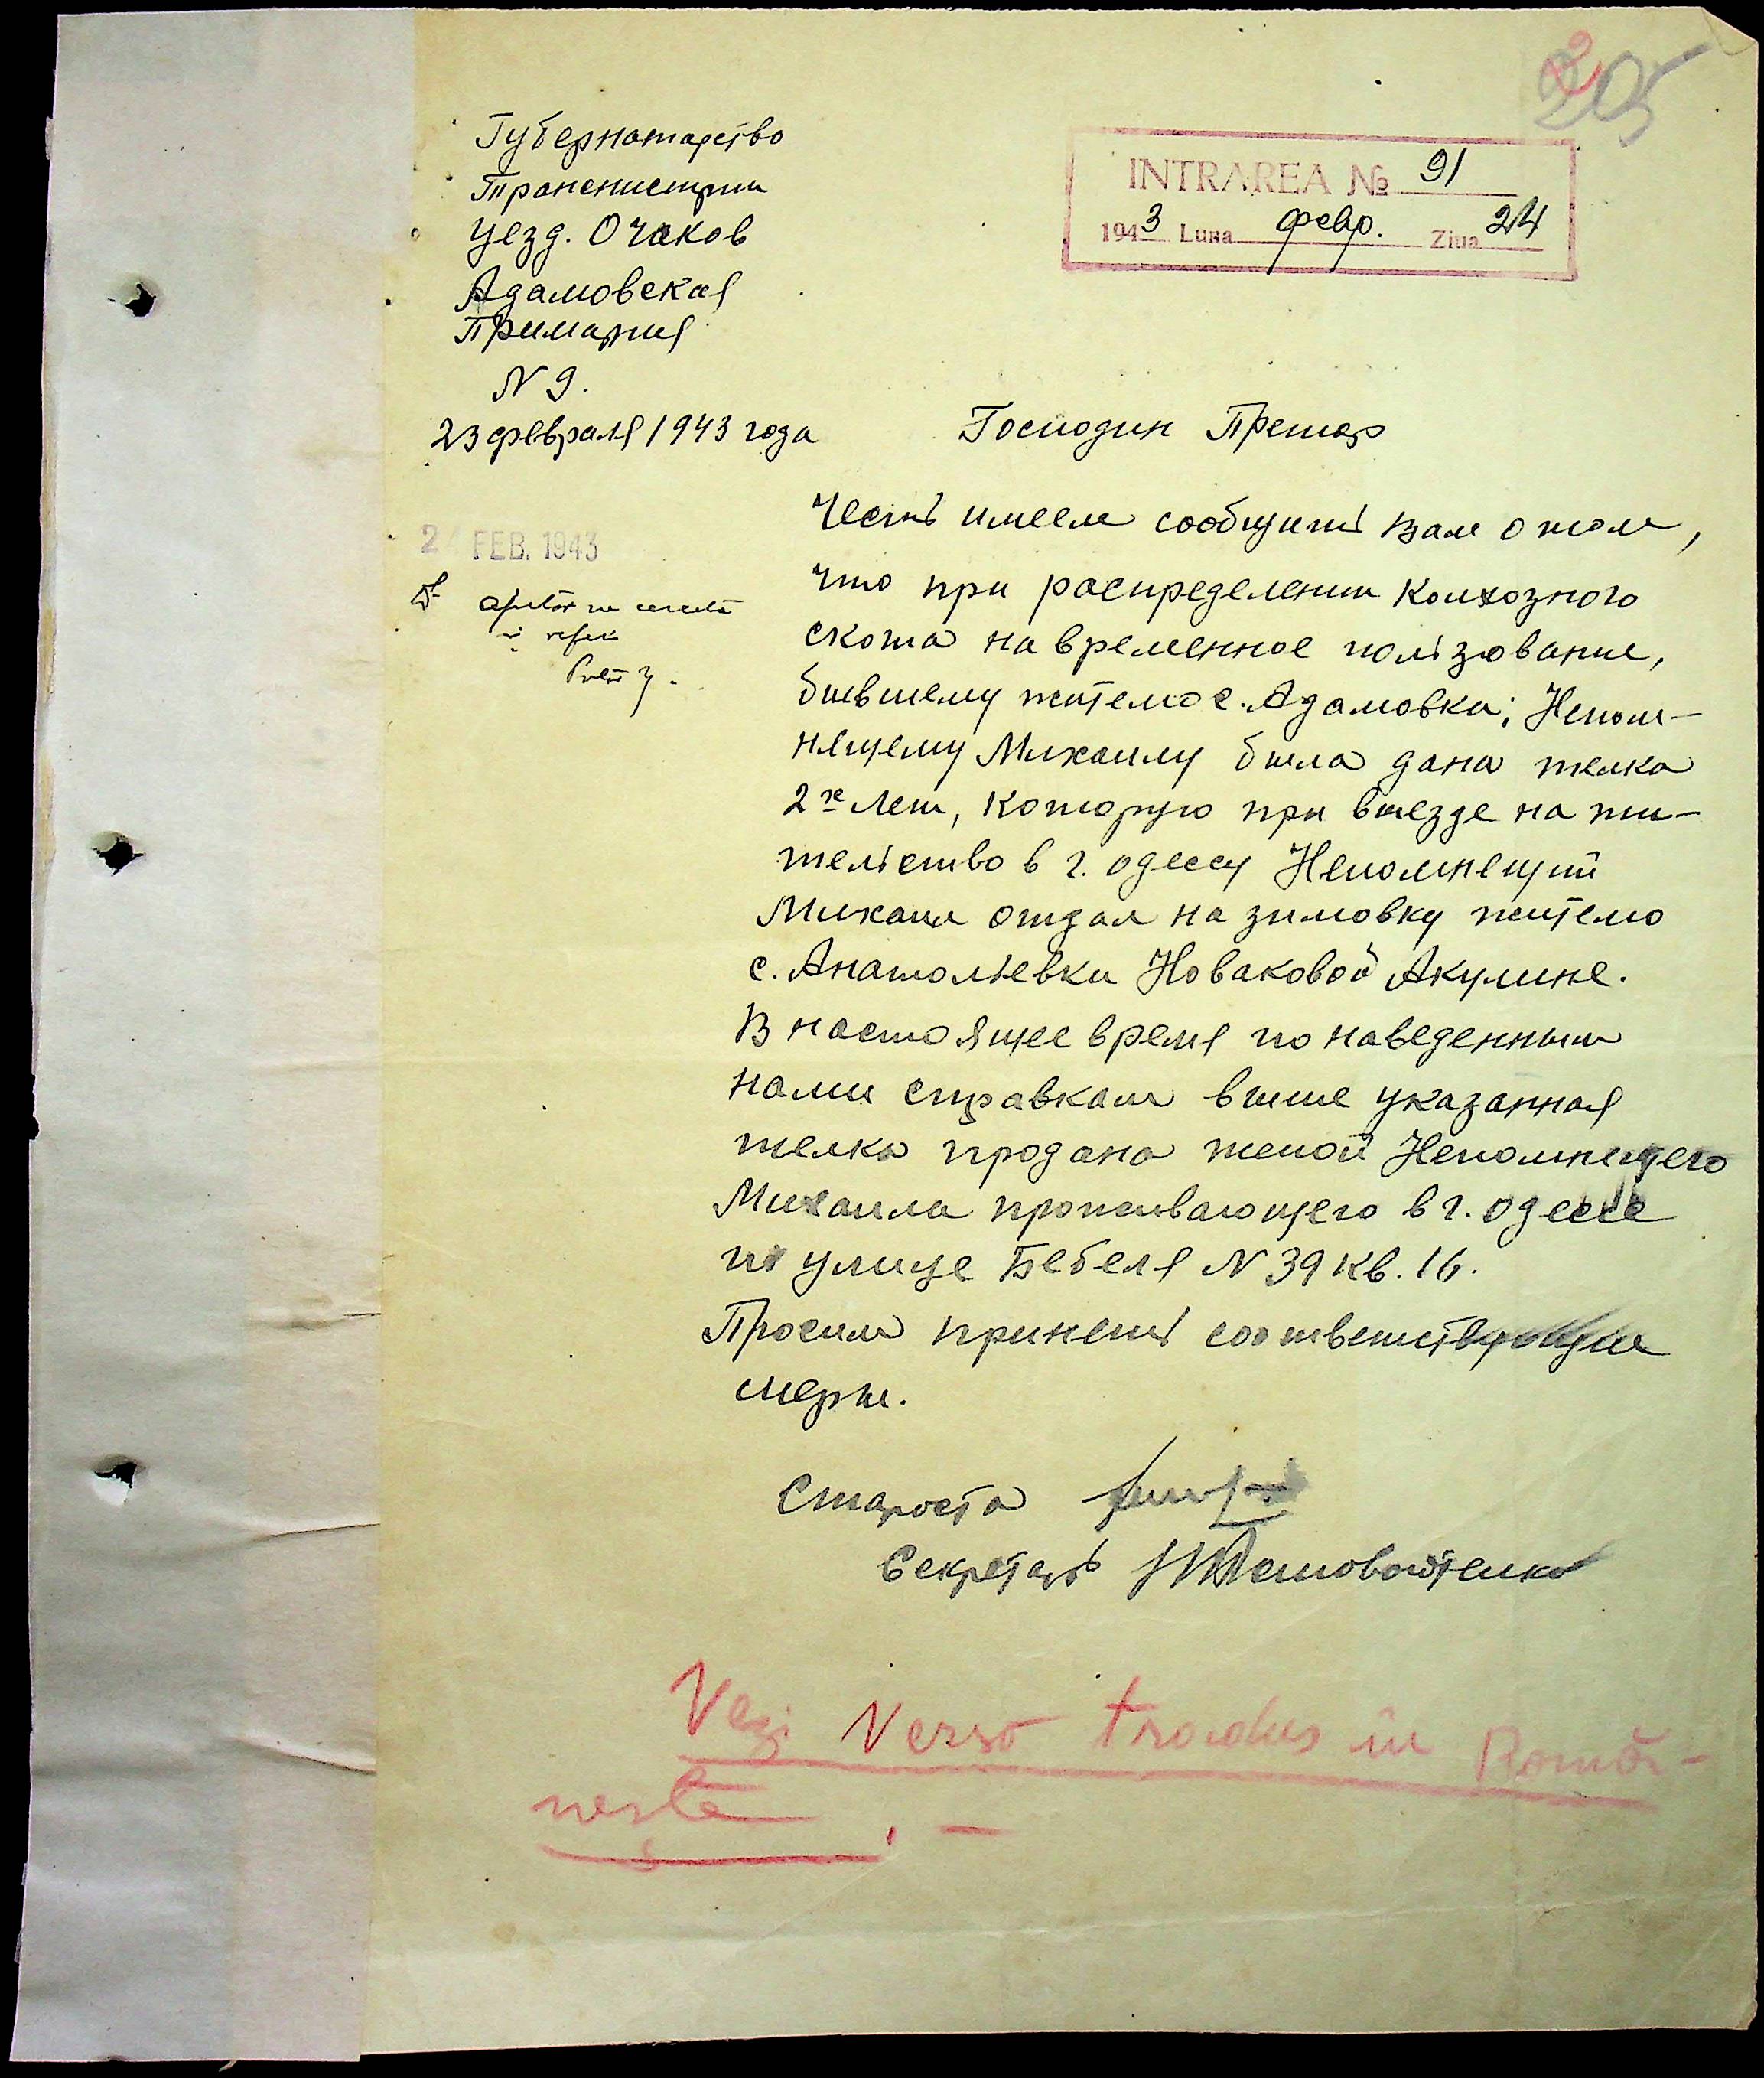 205
Губернатарство
Транснистрии
Уезд. Очаков
Адамовская
Примария
N 9.
23 февраля 1943 года
INTRAREA № 91
1943 Luna февр. Ziua 24
Господин Претор
24 FEB. 1943
Честь имеем сообщить Вам о том,
что при распределении Колхозного
скота на временное пользование,
бывшему жителю с. Адамовка; Непом-
нящему Михаилу была дана телка
2х лет, которую при выезде на жи-
тельство в г. одессу Непомнещий
Михаил отдал на зимовку жителю
с. Анатольевки Новаковой Акулине.
В настоящее время по наведенным
нами справкам выше указанная
телка продана женой Непомнещего
Михаила проживающего в г. одессе
по улице Бебеля N 39 кв. 16.
Просим принеть соответствующие
меры.
Староста
Секретарь
Vezi Verso tradus în Romă-
nește. —